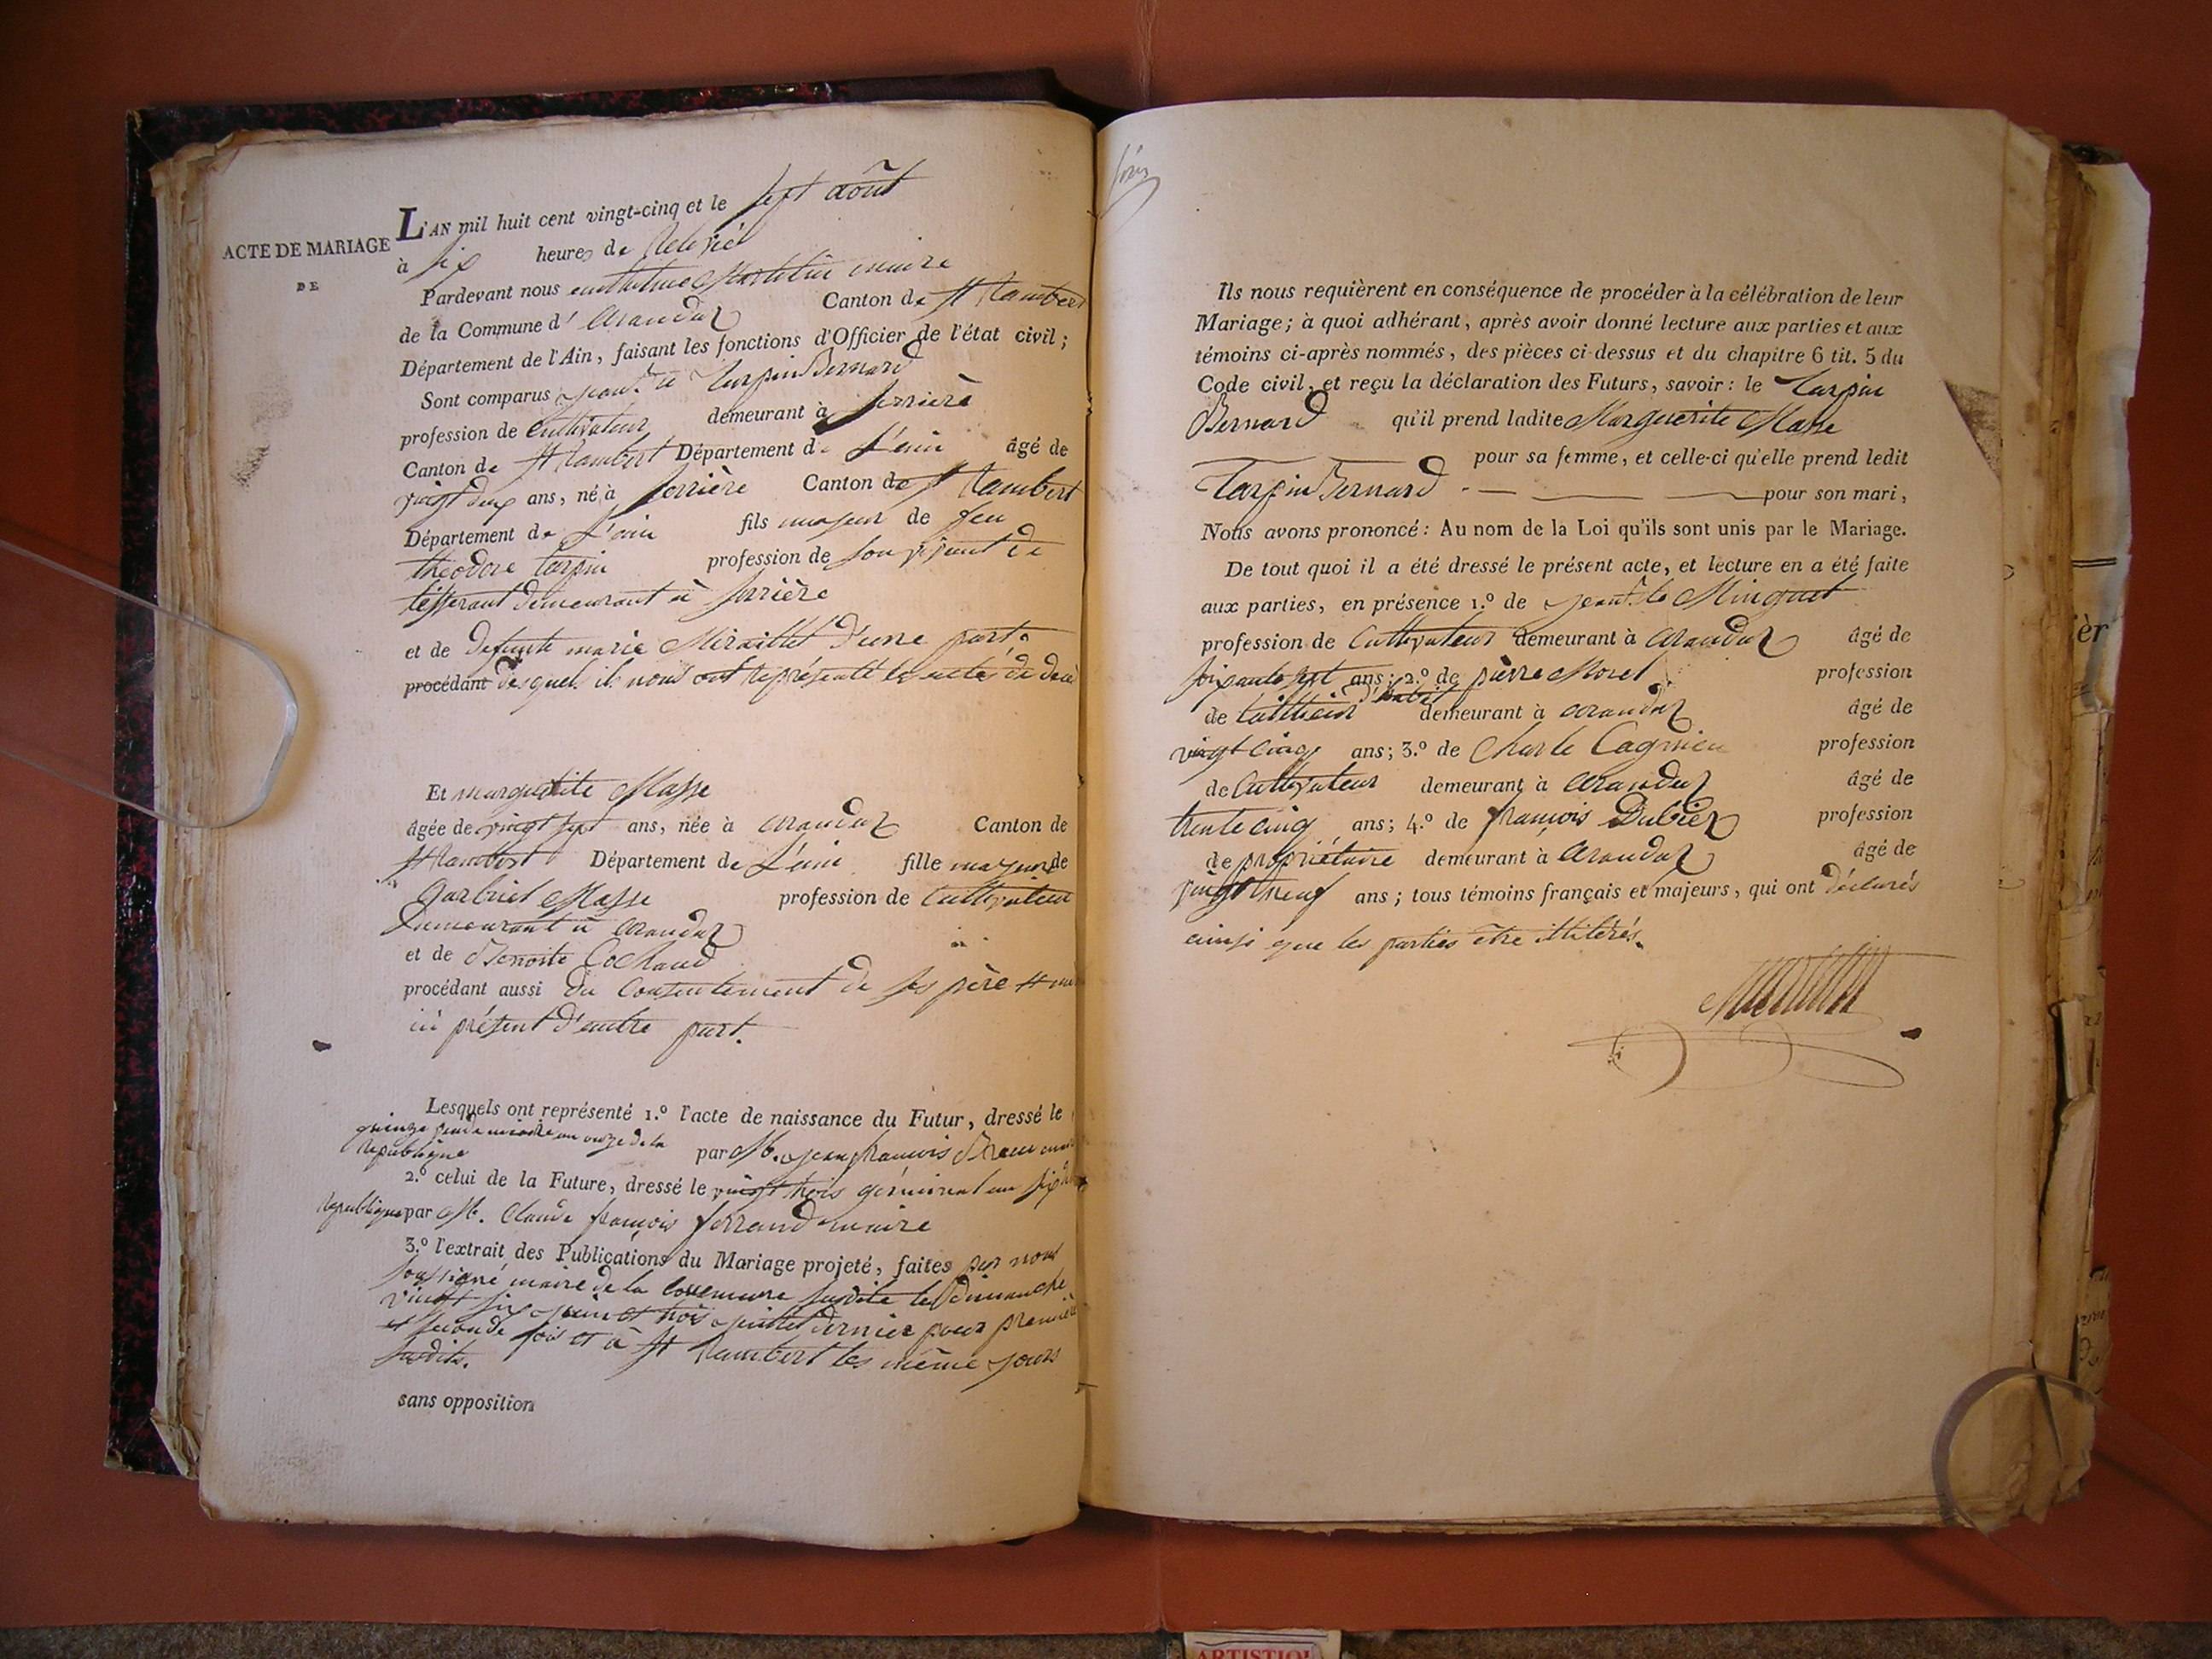 ACTE DE MARIAGE
DE
L'AN mil huit cent vingt-cinq et le sept août
à six heures de
Pardevant nous maire
de la Commune d' arandaz Canton de St Rambert
Département de l'Ain, faisant les fonctions d'Officier de l'état civil;
Sont comparus Tarpin Bernard
profession de Cultivateur demeurant à serrière
Canton de St Rambert Département de L'ain âgé de
vingt deux ans, né à serrière Canton de St Rambert
Département de L'ain fils majeur de feu
théodore tarpin profession de son vivant de
tisserant demeurant à serrière
et de defunte marie Miraillet d'une part.
procédant desquel il nous ont représenté les actes de décè
Et marguerite Masse
âgée de vingt sept ans, née à arandaz Canton de
St Rambert Département de L'ain fille majeure de
Gabriel Masse profession de Cultivateur
demeurant à arandaz
et de Benoite Cochaud
procédant aussi du Consentement de ses père et
ici présent d'autre part.
Lesquels ont représenté 1.º l'acte de naissance du Futur, dressé le
quinze vendemiaire an onze de la
Republique par M. jean francois
2.º celui de la Future, dressé le vingt trois germinal an six
Republique par M. Claude françois ferrand maire
3.º l'extrait des Publications du Mariage projeté, faites par nous
soussigné maire de la commune susdite les dimanche
vingt six juin et trois juillet dernier pour première
et seconde fois et à St Rambert les même jours
susdits.
sans opposition
Ils nous requièrent en conséquence de procéder à la célébration de leur
Mariage; à quoi adhérant, après avoir donné lecture aux parties et aux
témoins ci-après nommés, des pièces ci-dessus et du chapitre 6 tit. 5 du
Code civil, et reçu la déclaration des Futurs, savoir: le Tarpin
Bernard qu'il prend ladite Marguerite Masse
pour sa femme, et celle-ci qu'elle prend ledit
Tarpin Bernard pour son mari,
Nous avons prononcé: Au nom de la Loi qu'ils sont unis par le Mariage.
De tout quoi il a été dressé le présent acte, et lecture en a été faite
aux parties, en présence 1.º de Minguet
profession de Cultivateur demeurant à arandaz âgé de
soixante sept ans; 2.º de pièrre Morel profession
d'habit
de tailleur demeurant à arandaz âgé de
vingt cinq ans; 3.º de Charle Cagnieu profession
de Cultivateur demeurant à arandaz âgé de
trente cinq ans; 4.º de françois Dubiez profession
de propriétaire demeurant à arandaz âgé de
vingt neuf ans; tous témoins français et majeurs, qui ont déclarés
ainsi que les parties être illitérés.